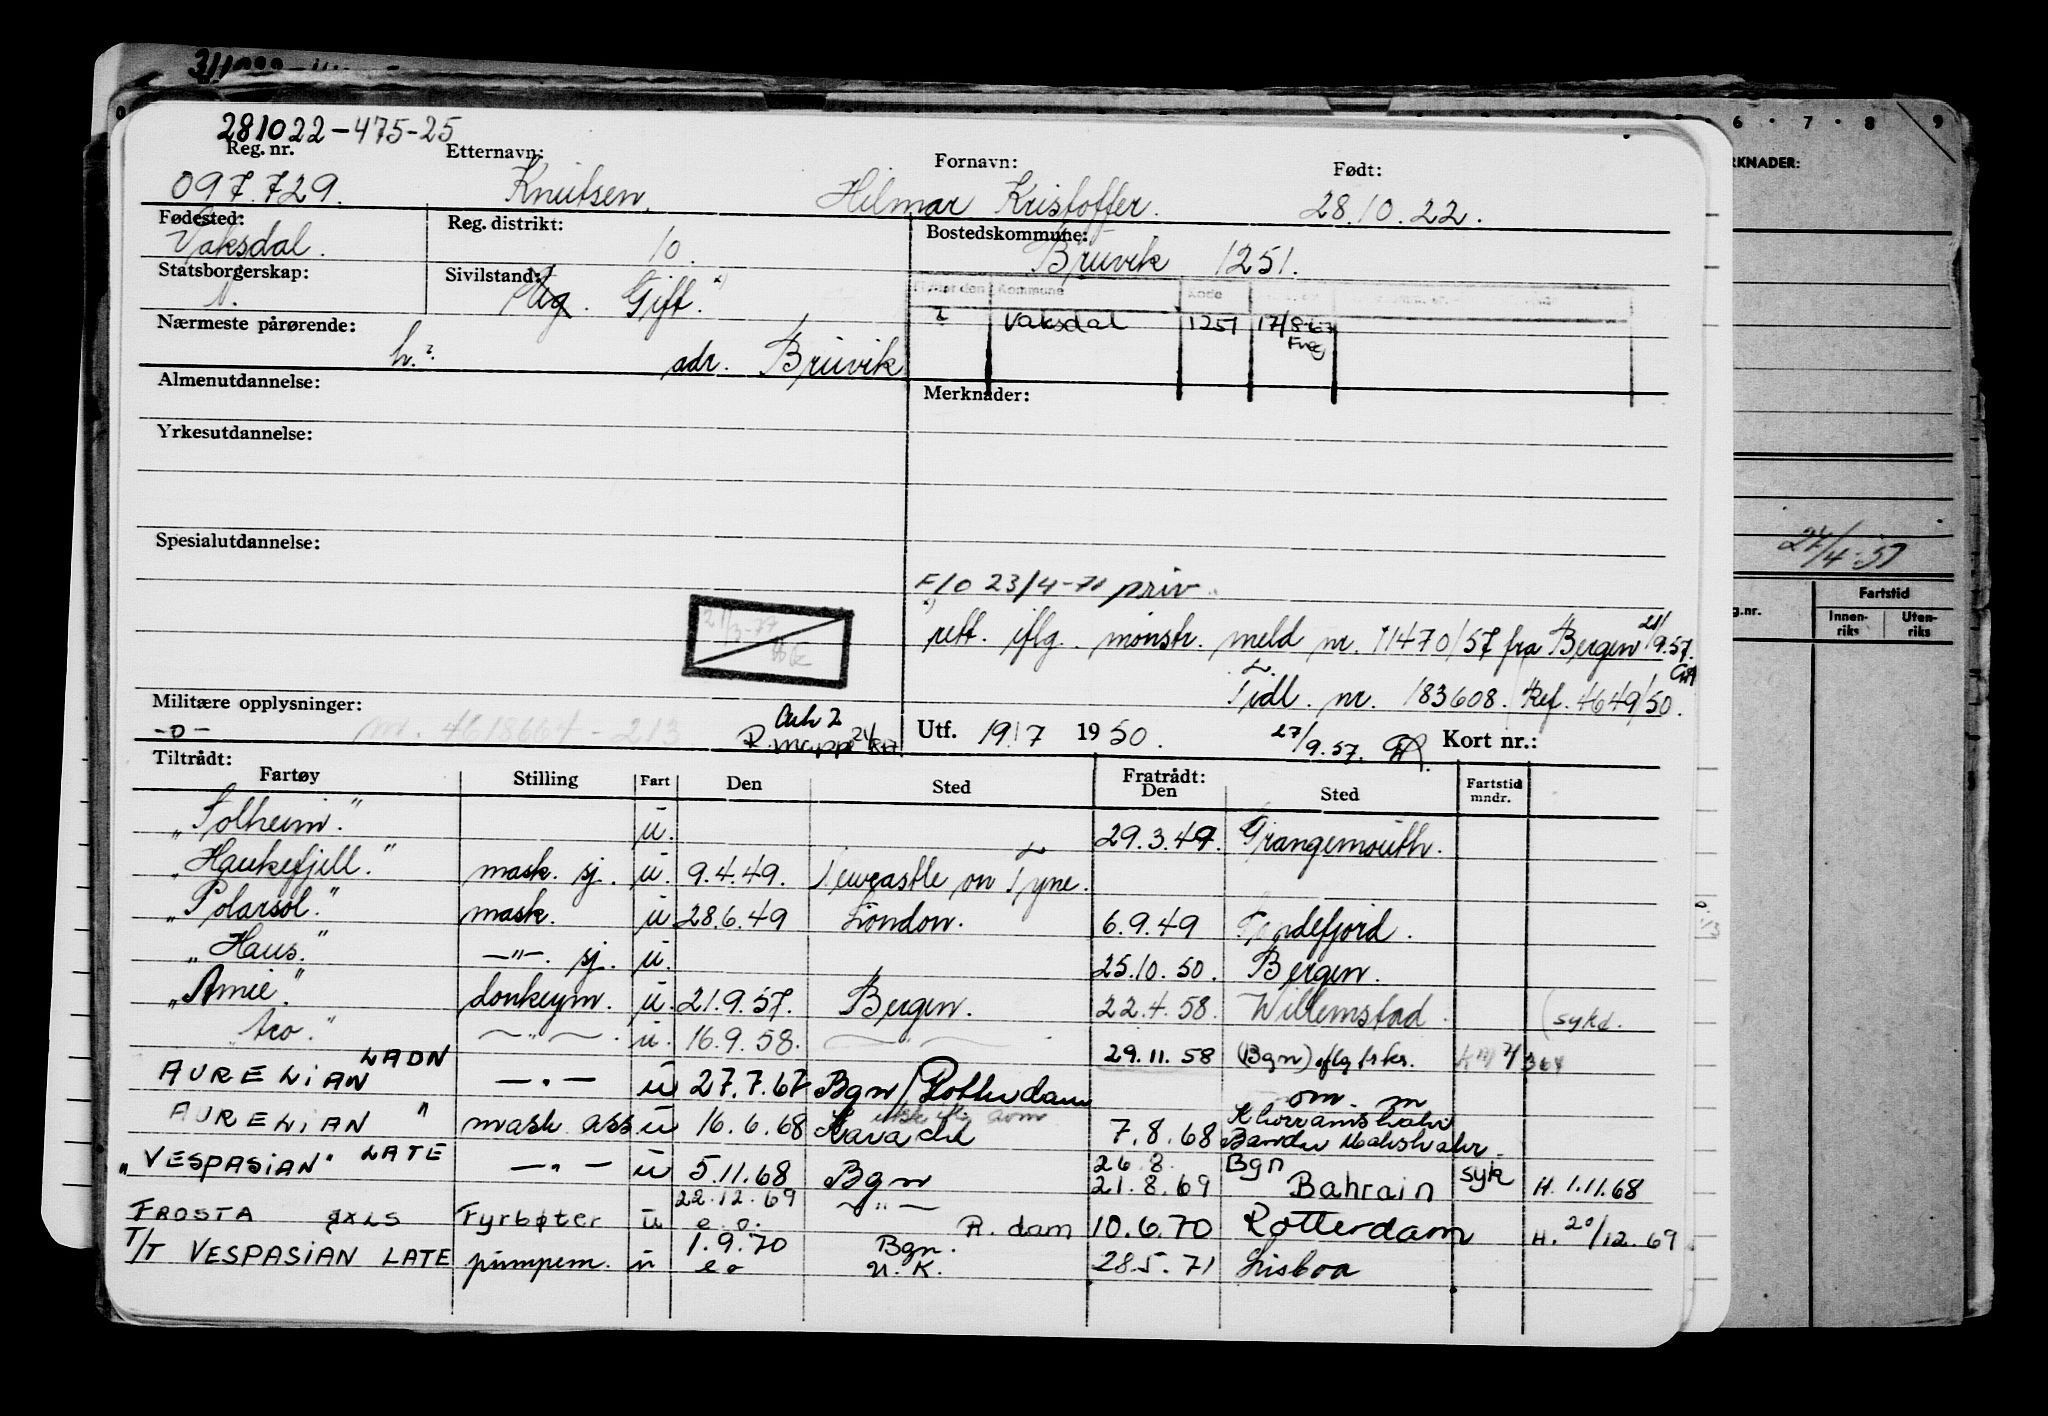 281022-475-25
Reg. nr. Etternavn: Fornavn: Født:
097.729. Knutsen, Hilmar Kristoffer. 28.10.22.
Fødested: Reg. distrikt: Bostedskommune:
Vaksdal. 10. Bruvik 1251.
Statsborgerskap: Sivilstand:
N. Ug. Gift.
Kommune Kode
Vaksdal 1251 17/8-67
Freg
Nærmeste pårørende:
h. adr. Bruvik
Almenutdannelse: Merknader:
Yrkesutdannelse:
Spesialutdannelse:
F/O 23/4-71 priv.
21/3-77
rett. iflg. mønstr. meld nr. 11470/57 fra Bergen 21/9.57.
Tidl. nr. 183608. Ref. 4649/50.
Militære opplysninger:
-o- nr. 4618664-213 Ark 2
R.mappe Utf. 19/7 1950. 27/9.57. Kort nr.:
Tiltrådt: Fratrådt:
Fartøy Stilling Fart Den Sted Den Sted Fartstid mndr.
"Solheim." u. 29.3.49. Grangemouth.
"Haukefjell." mask. sj. u. 9.4.49. Newcastle on Tyne.
"Polarsol." mask. u. 28.6.49 London. 6.9.49 Sandefjord.
"Haus." —"—. sj. u. 25.10.50. Bergen.
"Amie". donkeym. u. 21.9.57. Bergen. 22.4.58. Willemstad. (sykd.
"Aro." —"—. u. 16.9.58. —"— 29.11.58 (Bgn) iflg
AURELIAN LADN —"— u 27.7.67 Bgn/Rotterdam om. m
AURELIAN " mask ass u 16.6.68 7.8.68 Khorramshahr
Bandar
"VESPASIAN" LATE —"— u 5.11.68 Bgn 26.8. Bgn
21.8.69 Bahrain syk H. 1.11.68
FROSTA JXLS Fyrbøter u 22.12.69 e.o. —"— R.dam 10.6.70 Rotterdam H. 20/12.69
T/T VESPASIAN LATE pumpem. u 1.9.70 e o Bgn. U.K. 28.5.71 Lisboa
6 · 7 · 8 9
RKNADER:
24/4-57
g.nr. Fartstid
Innen-riks Uten-riks